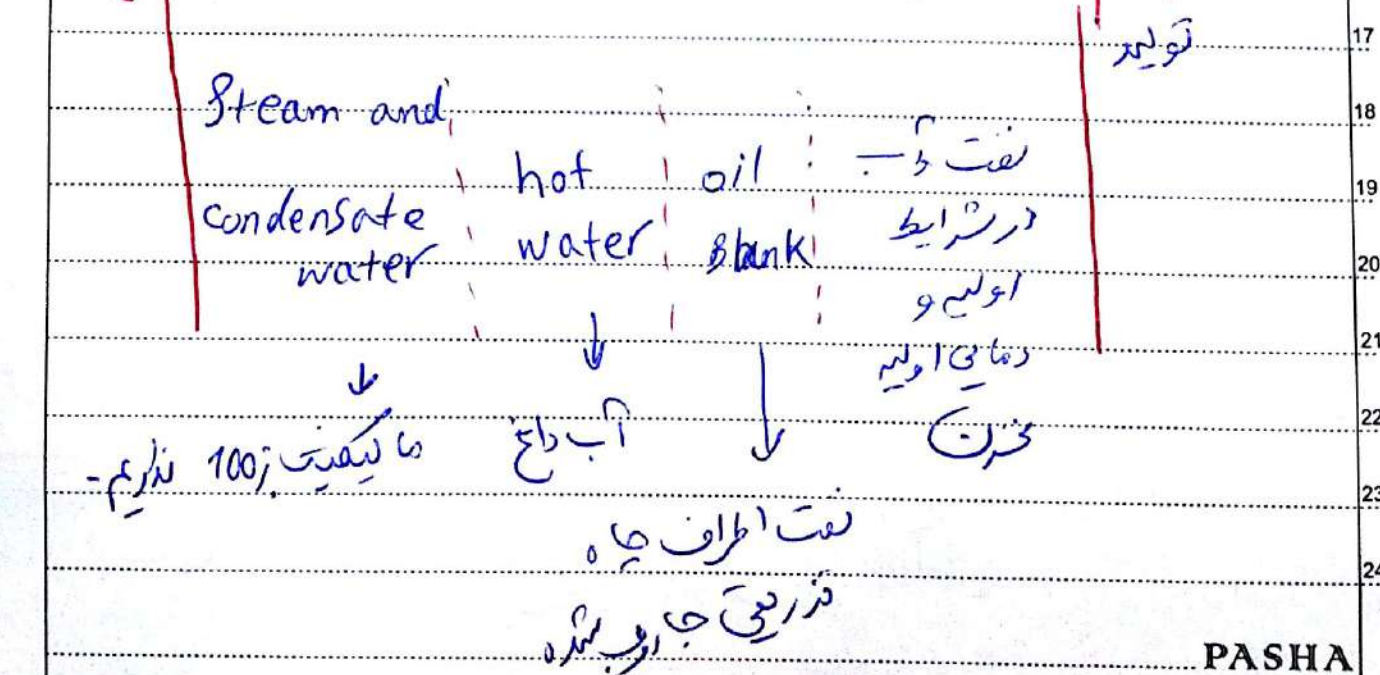 تولید
Steam and
condensate
water
hot
water
oil
bank
نفت و آب
در شرایط
اولیه و
دمای اولیه
مخزن
آب داغ
ما کیفیت 100٪ نداریم.
نفت اطراف چاه
تزریقی جاروب شده
17
18
19
20
21
22
23
24
PASHA